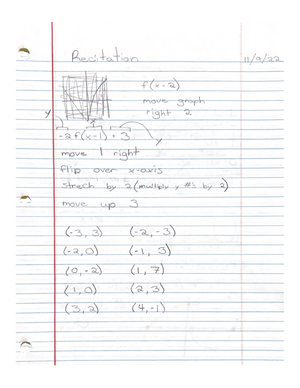 Recitation 11/9/22
f(x-2)
move graph
right 2
y
-2f(x-1)+3
y
move 1 right
flip over x-axis
strech by 2 (multiply y #s by 2)
move up 3
(-3, 3) (-2, -3)
(-2, 0) (-1, 3)
(0, -2) (1, 7)
(1, 0) (2, 3)
(3, 2) (4, -1)